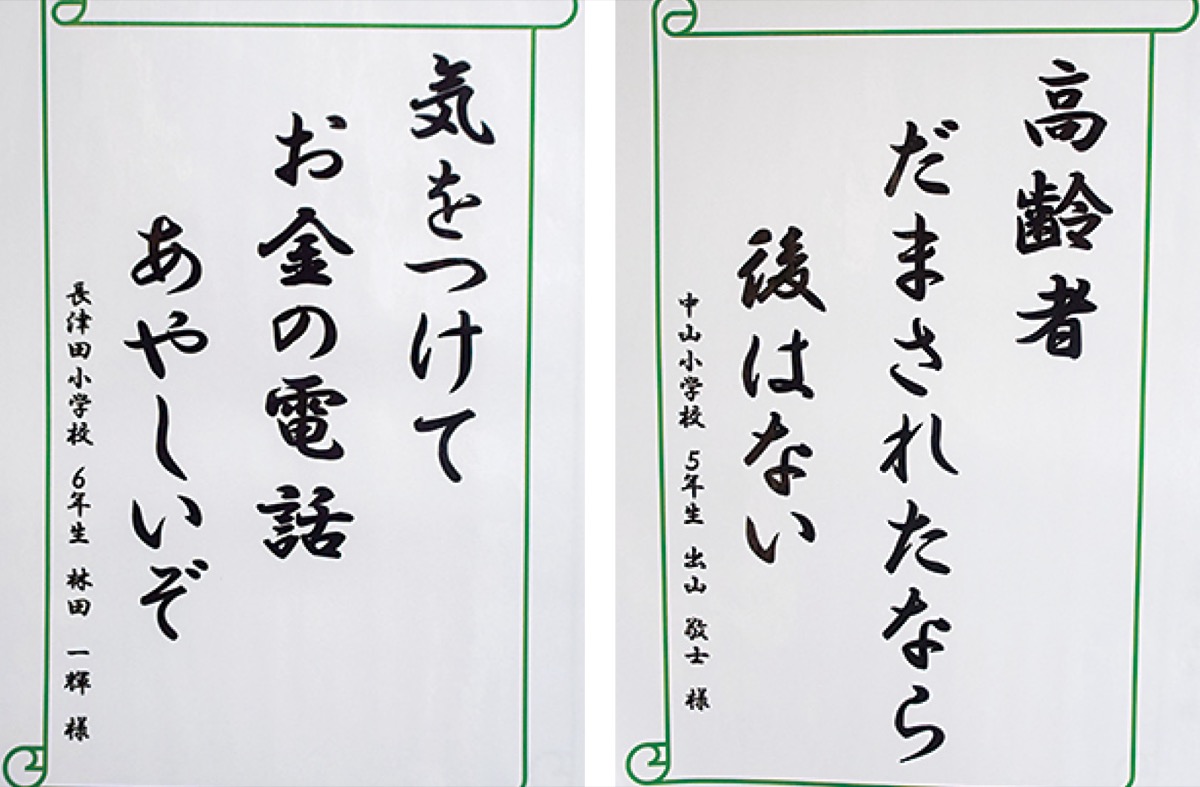 気をつけて
お金の電話
あやしいぞ
長津田小学校 6年生 林田 一輝 様
高齢者
だまされたなら
後はない
中山小学校 5年生 出山 敬士 様